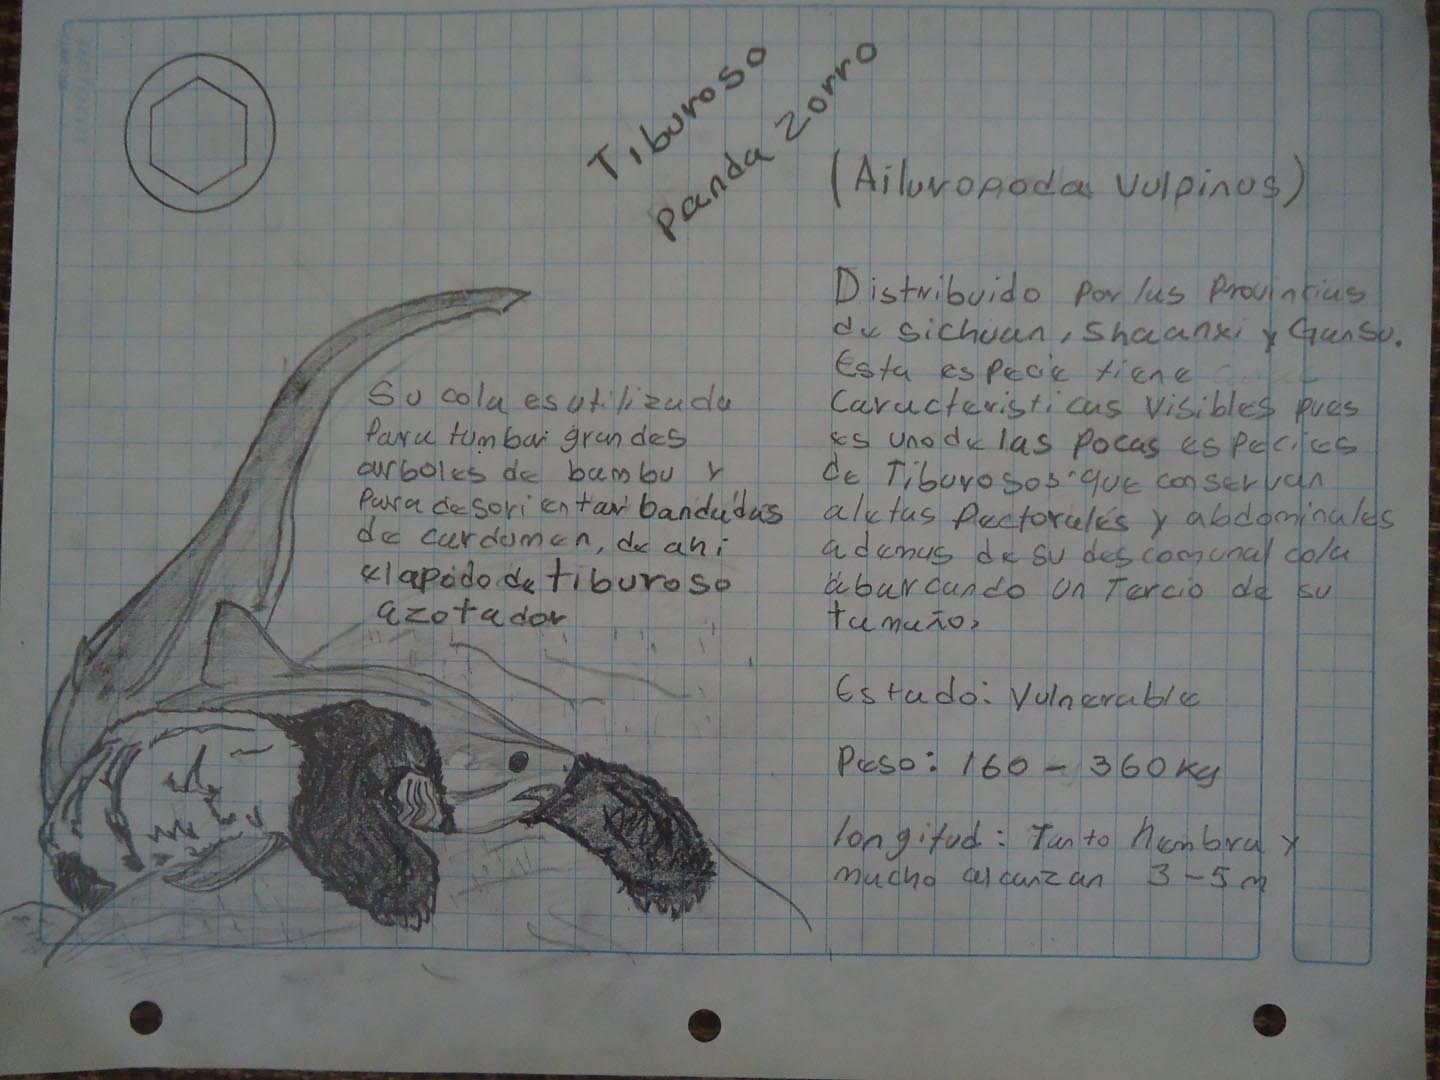 Tiburoso
panda Zorro
(Ailuropoda vulpinus)
Su cola es utilizada
para tumbar grandes
arboles de bambu y
para desorientar bandadas
de cardumen, de ahi
el apodo de tiburoso
azotador
Distribuido por las provincias
de Sichuan, Shaanxi y Gansu.
Esta especie tiene
caracteristicas visibles pues
es uno de las pocas especies
de Tiburosos que conservan
aletas pectorales y abdominales
ademas de su descomunal cola
abarcando un Tercio de su
tamaño,
Estado: Vulnerable
Peso: 160 - 360 kg
longitud: Tanto hembra y
macho alcanzan 3 - 5 m